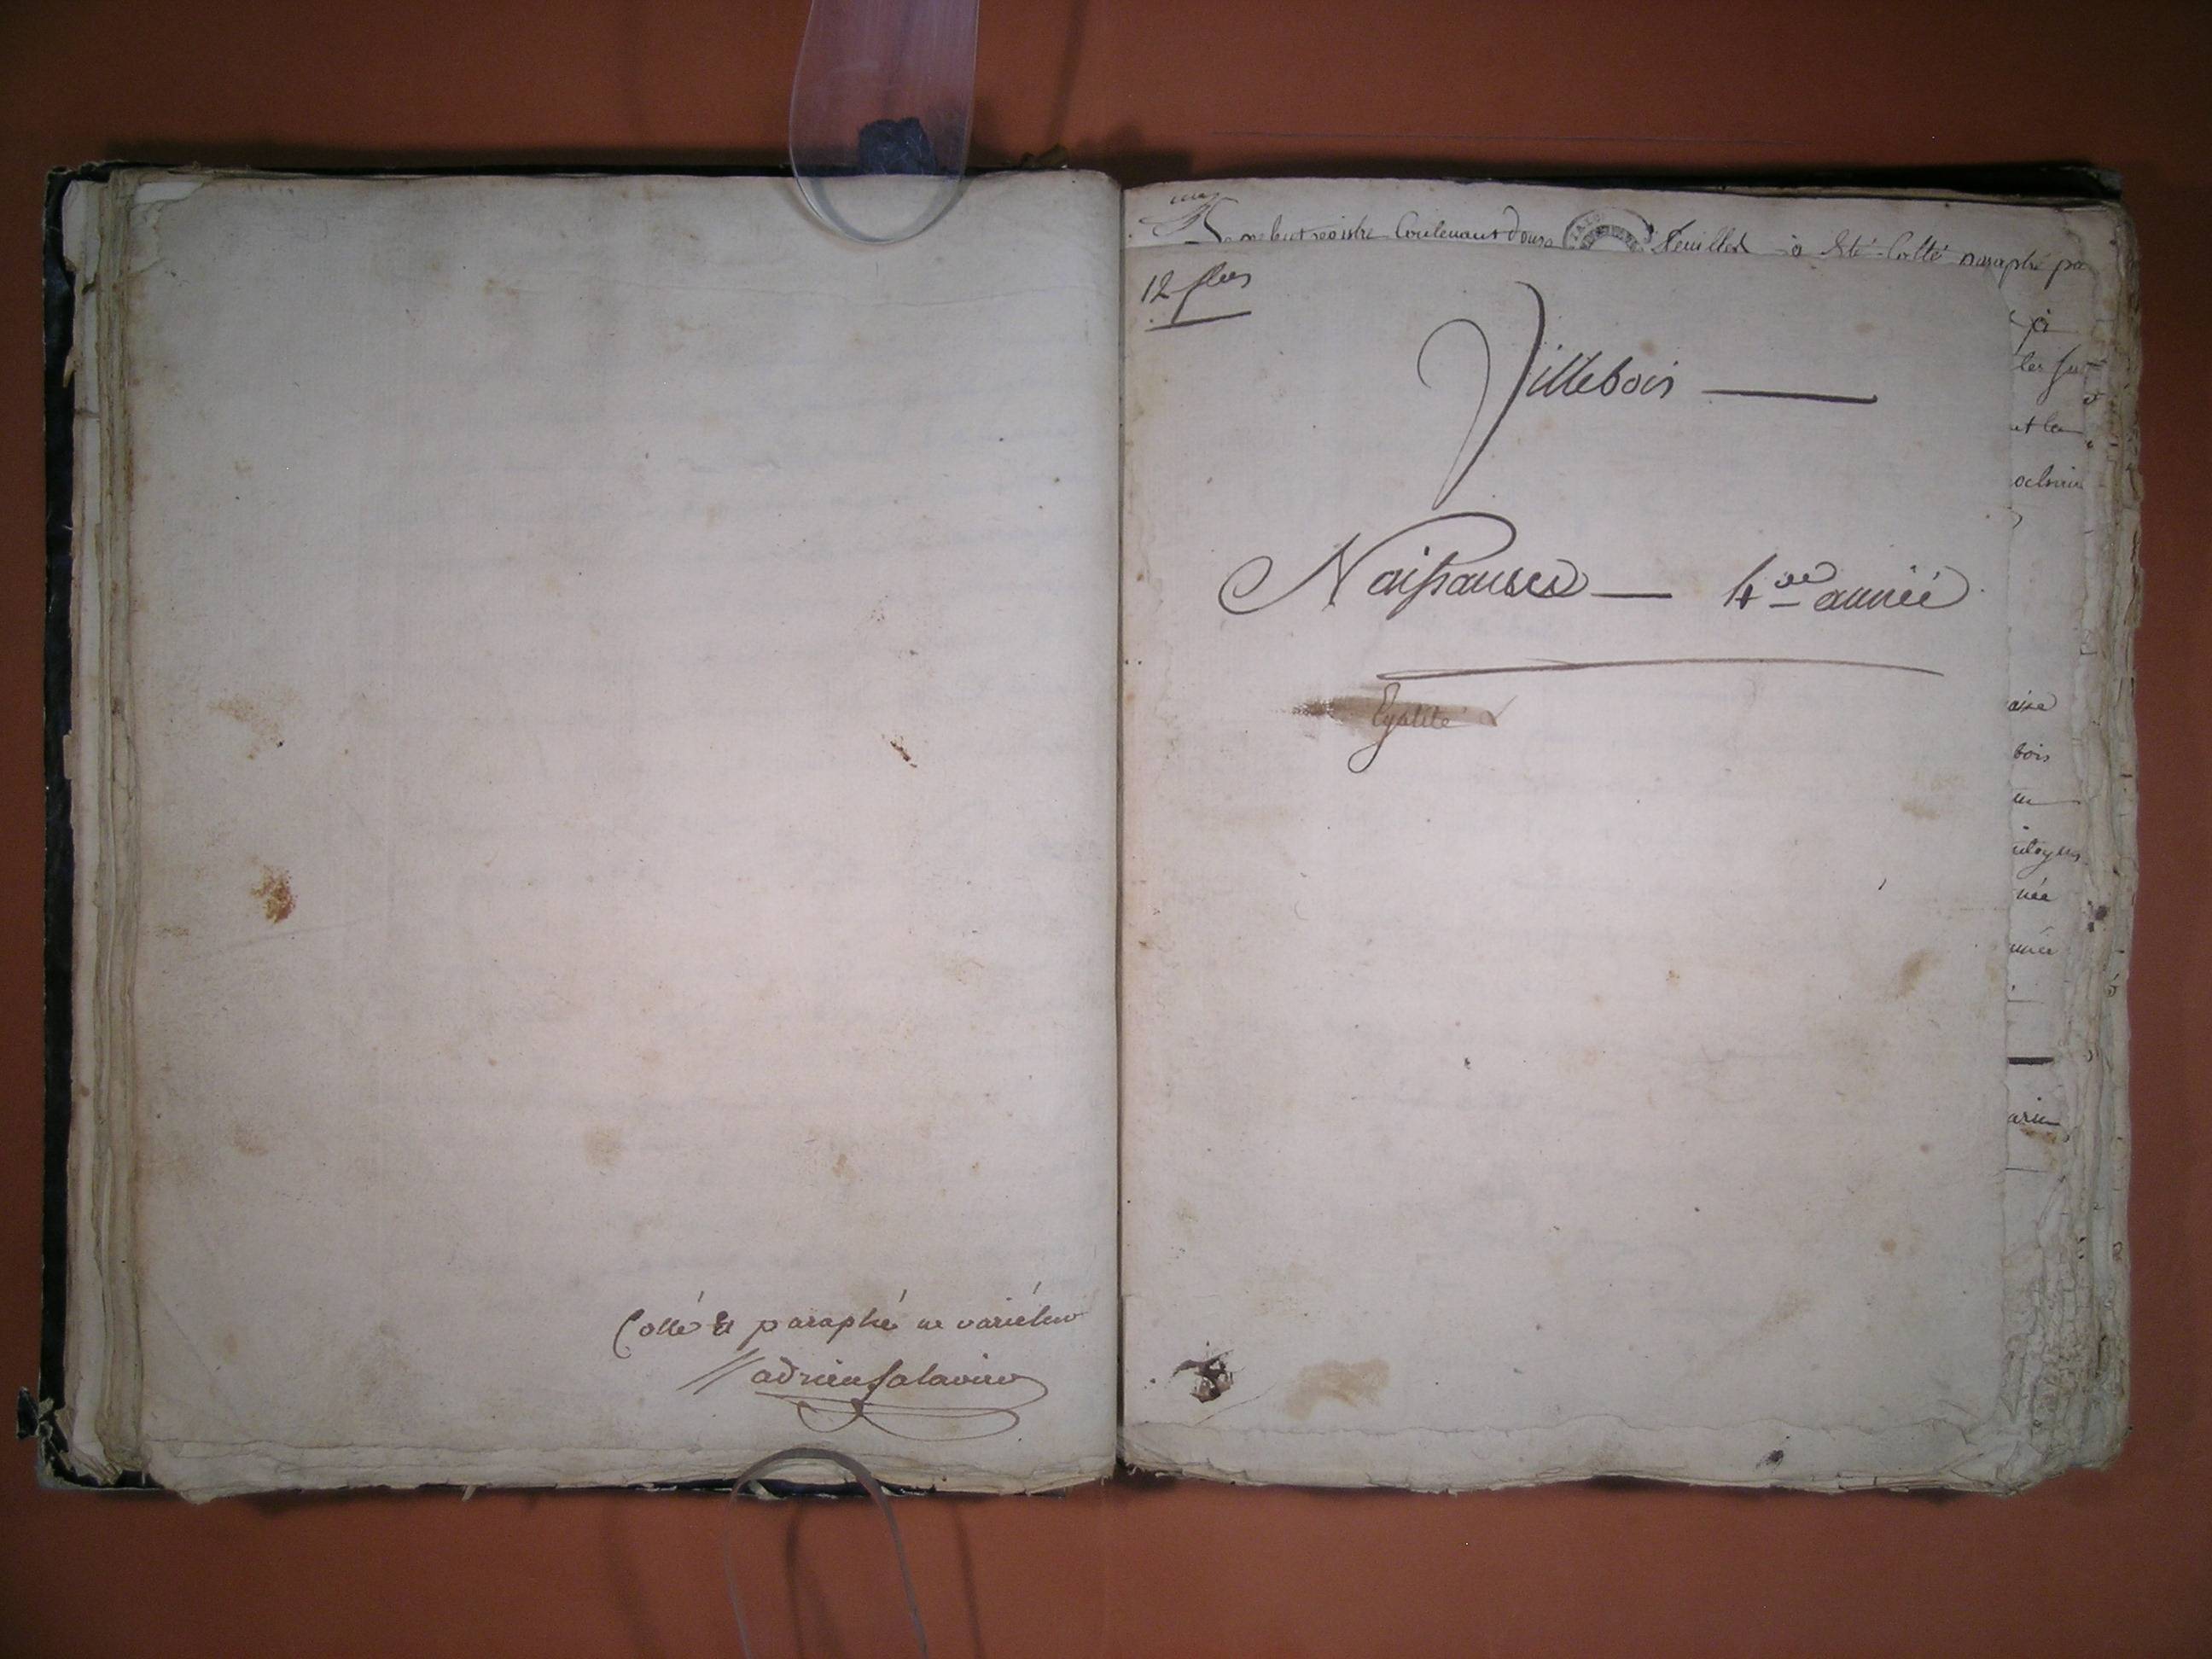 Collé & paraphé ne variétur
adrien Salavin
Le présent registre Contenant douse feuillets a été Cotté paraphé par
12 fles
Villebois
Naissances — 4me année
Egalité
bois
née